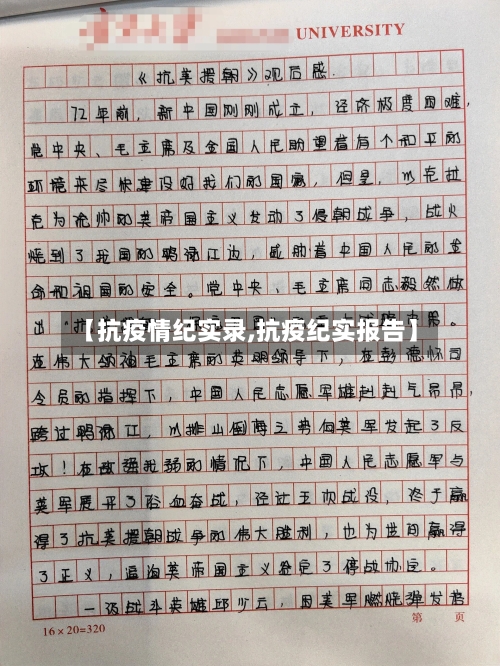 UNIVERSITY
《抗美援朝》观后感.
72年前，新中国刚刚成立，经济极度困难，
党中央、毛主席及全国人民盼望着有个和平的
环境来尽快建设好我们的国家，但是，以克拉
克为统帅的美帝国主义发动了侵朝战争，战火
烧到了我国的鸭渌江边，威胁着中国人民的生
命和祖国的安全。党中央、毛主席同志毅然做
出"抗
【抗疫情纪实录,抗疫纪实报告】
在伟大领袖毛主席的英明领导下，在彭德怀司
令员的指挥下，中国人民志愿军雄赳赳气昂昂，
跨过鸭渌江，以排山倒海之势向美军发起了反
攻！在敌强我弱的情况下，中国人民志愿军与
美军展开了浴血奋战，经过五次战役，终于赢
得了抗美援朝战争的伟大胜利，也为世间赢得
了正义，逼迫美帝国主义签定了停战协定。
一级战斗英雄邱少云，因美军燃烧弹发着
16×20=320
第 页